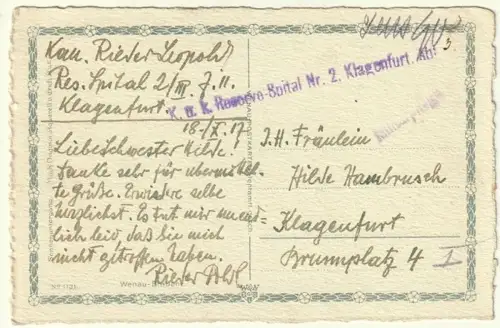 Kan. Rieder Leopold
Res. Spital 2/III Z. 11.
Klagenfurt.
18./X. 17
K. u. K. Reserve-Spital Nr. 2. Klagenfurt. Abt
Liebe Schwester Hilde!
Danke sehr für übermittel-
te Grüße. Erwidere selbe
herzlichst. Es tut mir unend-
lich leid, daß Sie mich
nicht getroffen haben.
Rieder Pold.
I. H. Fräulein
Hilde Hambrusch
Klagenfurt
Brunnplatz 4 I